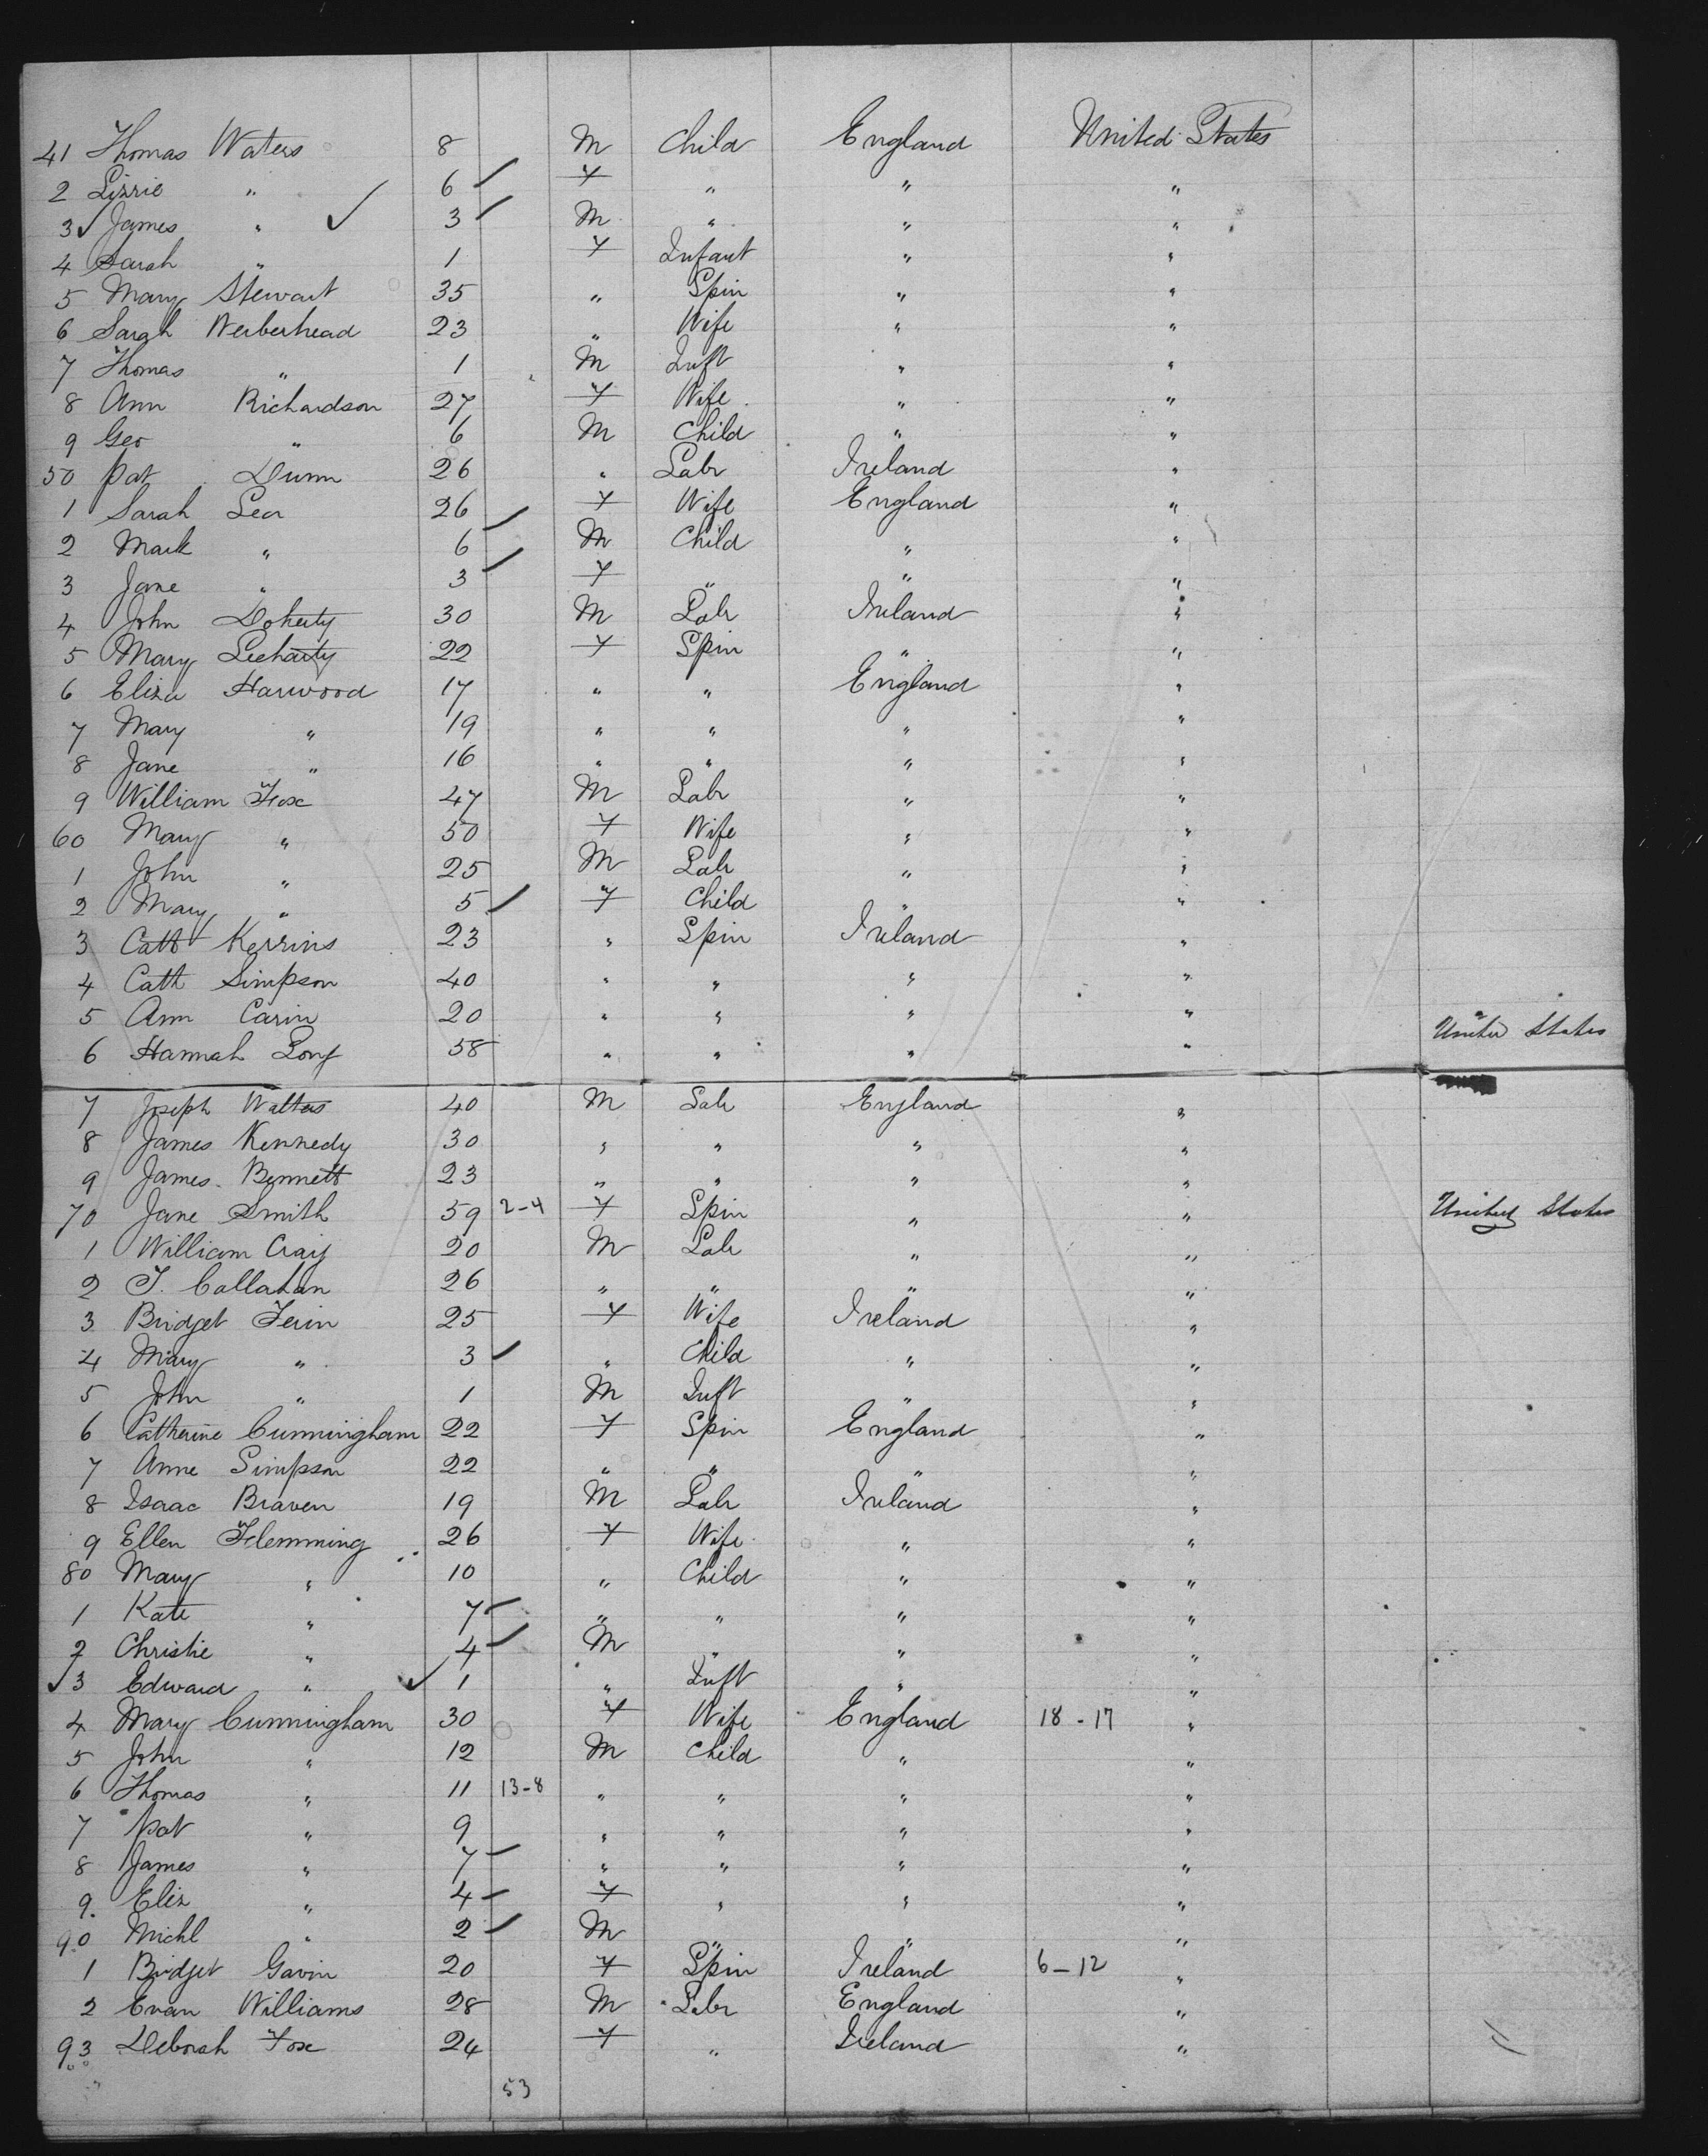 41 Thomas Waters 8 M Child England United States
2 Lizzie " 6 F " " "
3 James " 3 M " " "
4 Sarah " 1 F Infant " "
5 Mary Stewart 35 " Spin " "
6 Sarah Werberhead 23 " Wife " "
7 Thomas " 1 M Inft " "
8 Ann Richardson 27 F Wife " "
9 Geo " 6 M Child " "
50 Pat Dunn 26 " Labr Ireland "
1 Sarah Lea 26 F Wife England "
2 Mark " 6 M Child " "
3 Jane " 3 F " " "
4 John Doherty 30 M Labr Ireland "
5 Mary 22 F Spin " "
6 Eliza Harwood 17 " " England "
7 Mary " 19 " " " "
8 Jane " 16 " " " "
9 William Fox 47 M Labr " "
60 Mary " 50 F Wife " "
1 John " 25 M Labr " "
2 Mary " 5 F Child " "
3 Cath Kerrins 23 " Spin Ireland "
4 Cath Simpson 40 " " " "
5 Ann Carin 20 " " " " United States
6 Hannah Long 58 " " " "
7 Joseph Walters 40 M Labr England "
8 James Kennedy 30 " " " "
9 James Bennett 23 " " " "
70 Jane Smith 59 2-4 F Spin " " United States
1 William Craig 20 M Labr " "
2 T. Callahan 26 " " " "
3 Bridget Ferin 25 F Wife Ireland "
4 Mary " 3 " Child " "
5 John " 1 M Inft " "
6 Catherine Cunningham 22 F Spin England "
7 Anne Simpson 22 " " " "
8 Isaac Braven 19 M Labr Ireland "
9 Ellen Flemming 26 F Wife " "
80 Mary " 10 " Child " "
1 Kate " 7 " " " "
2 Christie " 4 M " " "
3 Edward " 1 " Inft " "
4 Mary Cunningham 30 F Wife England 18-17 "
5 John " 12 M Child " "
6 Thomas " 11 13-8 " " " "
7 Pat " 9 " " " "
8 James " 7 " " " "
9. Eliz " 4 F " " "
90 Michl " 2 M " " "
1 Bridget Gavin 20 F Spin Ireland 6-12 "
2 Evan Williams 28 M Labr England "
93 Deborah Fox 24 F " Ireland "
53